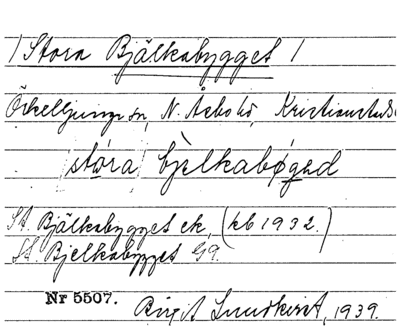 / Stora Bjälkabygget /
Örkelljunga sn, N. Åsbo hd, Kristianstads
/stóra/ bjelkabøgəd
St. Bjälkabygget ek. (kb 1932.)
St. Bjelkabygget G9.
Nr 5507.
Birgit Lundkvist, 1939.